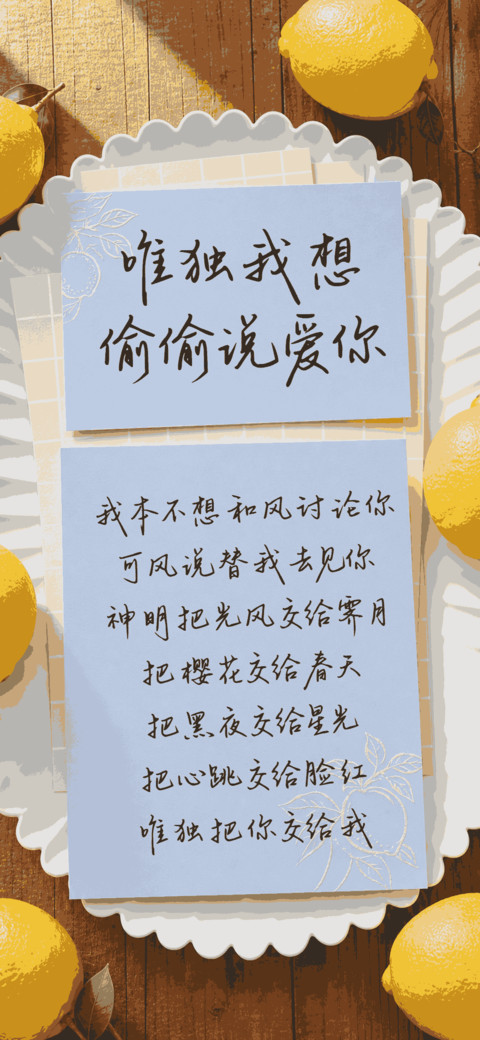 唯独我想
偷偷说爱你
我本不想和风讨论你
可风说替我去见你
神明把光风交给霁月
把樱花交给春天
把黑夜交给星光
把心跳交给脸红
唯独把你交给我